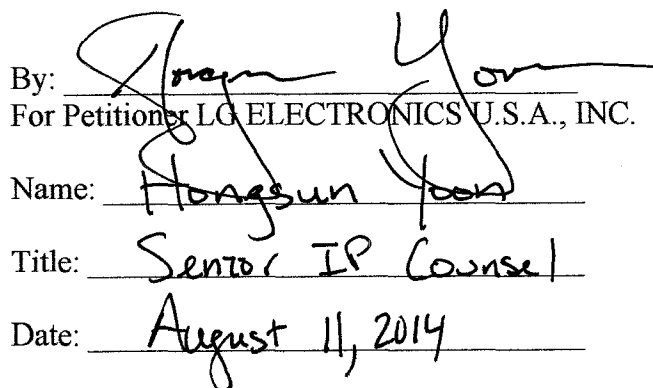 By:
For Petitioner LG ELECTRONICS U.S.A., INC.
Name: Hongsun Yoon
Title: Senior IP Counsel
Date: August 11, 2014